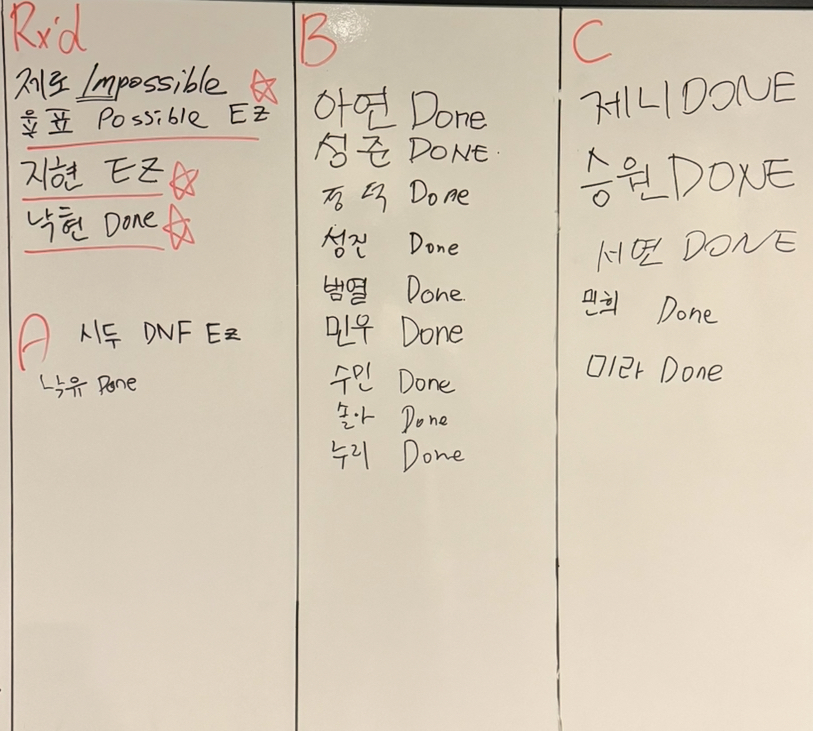 Rx'd
제로 Impossible
윤표 Possible EZ
지현 EZ
낙현 Done
A 시두 DNF EZ
낙유 Done
B
아연 Done
성준 DONE.
정덕 Done
성진 Done
범열 Done.
민우 Done
수민 Done
솔아 Done
누리 Done
C
제니 DONE
승원 DONE
서연 DONE
민희 Done
미라 Done